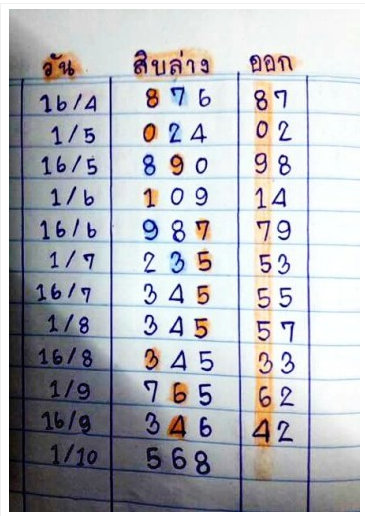 วัน สิบล่าง ออก
16/4 876 87
1/5 024 02
16/5 890 98
1/6 109 14
16/6 987 79
1/7 235 53
16/7 345 55
1/8 345 57
16/8 345 33
1/9 765 62
16/9 346 42
1/10 568